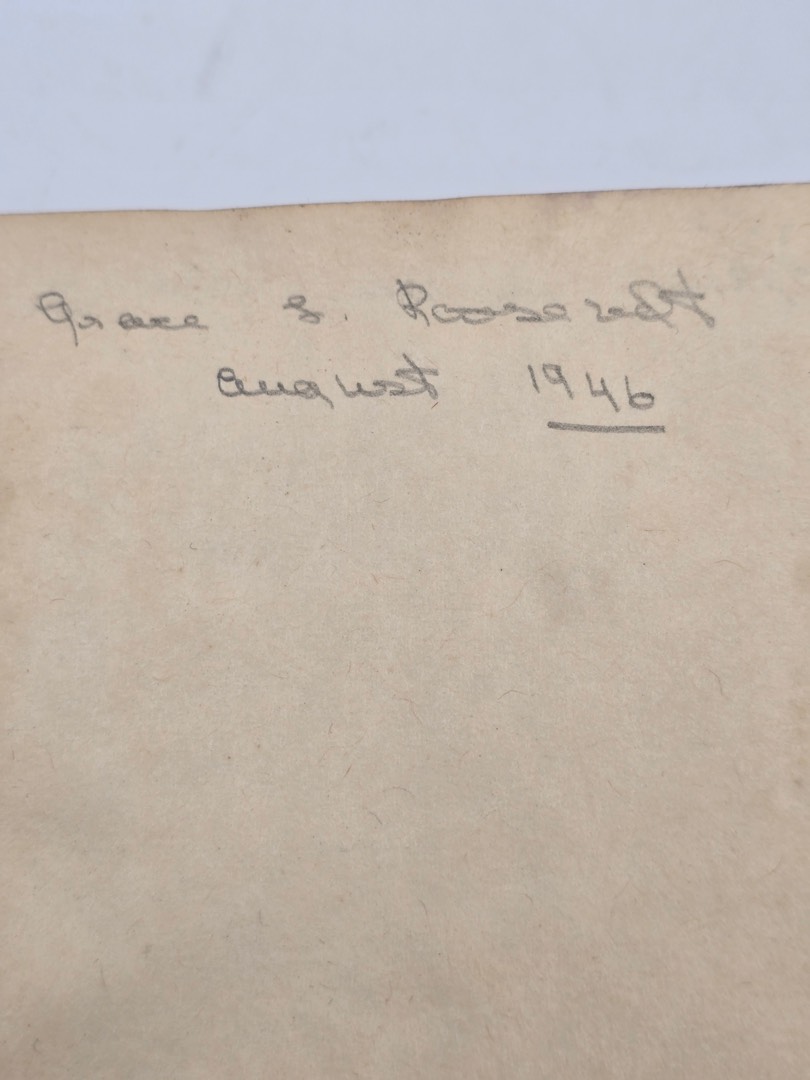 Grace S. Roosevelt
August 1946